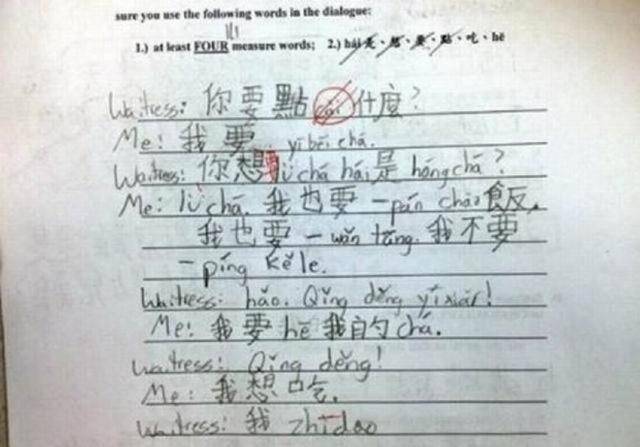 sure you use the following words in the dialogue:
1.) at least FOUR measure words; 2.) hái是、想、要、點、吃、hē
Waitress: 你要點cài什麼?
Me: 我要 yī bēi chá.
Waitress: 你想要lǜ chá hái是 hóngchá?
Me: lǜ chá. 我也要一pán chǎo飯.
我也要一wǎn tāng. 我不要
一píng kělè.
Waitress: hǎo. Qǐng děng yíxiàr!
Me: 我要 hē 我的 chá.
Waitress: Qǐng děng!
Me: 我想吃.
Waitress: 我 zhīdao